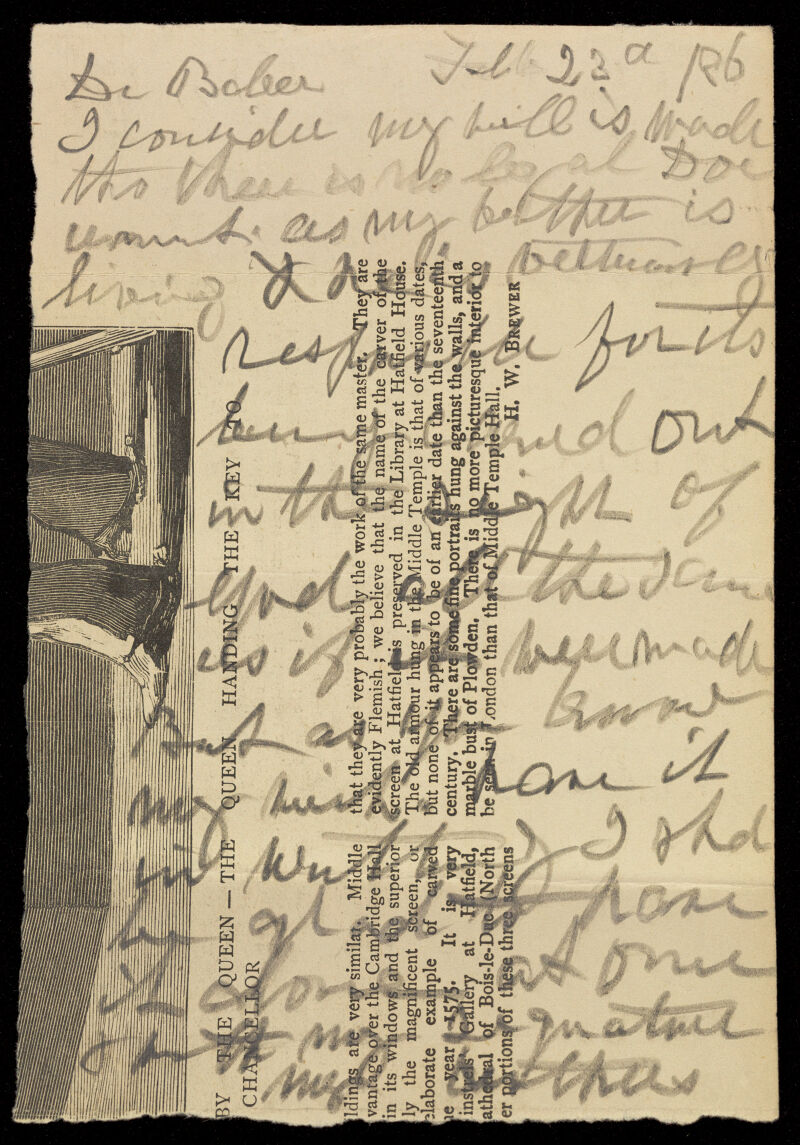 Feb 23d /86
Dr Baker
I consider my will is made
tho there is no legal Doc
ument. as my brother is
living &
for its
out
in the sight of
God the same
as if were made
But as you know
my mind have it
in writing I shd
be glad to have
it done at once
my signature
my brothers
BY THE QUEEN — THE QUEEN HANDING THE KEY TO
CHANCELLOR
ldings are very similar. Middle
vantage over the Cambridge Hall
in its windows and the superior
ly the magnificent screen, or
elaborate example of carved
e year 1575. It is very
instrels' Gallery at Hatfield,
athedral of Bois-le-Duc (North
er portions of these three screens
that they are very probably the work of the same master. They are
evidently Flemish; we believe that the name of the carver of the
screen at Hatfield is preserved in the Library at Hatfield House.
The old armour hung in the Middle Temple is that of various dates,
but none of it appears to be of an earlier date than the seventeenth
century. There are some fine portraits hung against the walls, and a
marble bust of Plowden. There is no more picturesque interior to
be seen in London than that of Middle Temple Hall.
H. W. BREWER